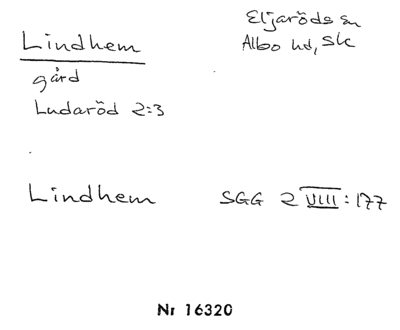 Lindhem
Eljaröds sn
Albo hd, Sk
gård
Ludaröd 2:3
Lindhem SGG 2 VIII:177
Nr 16320